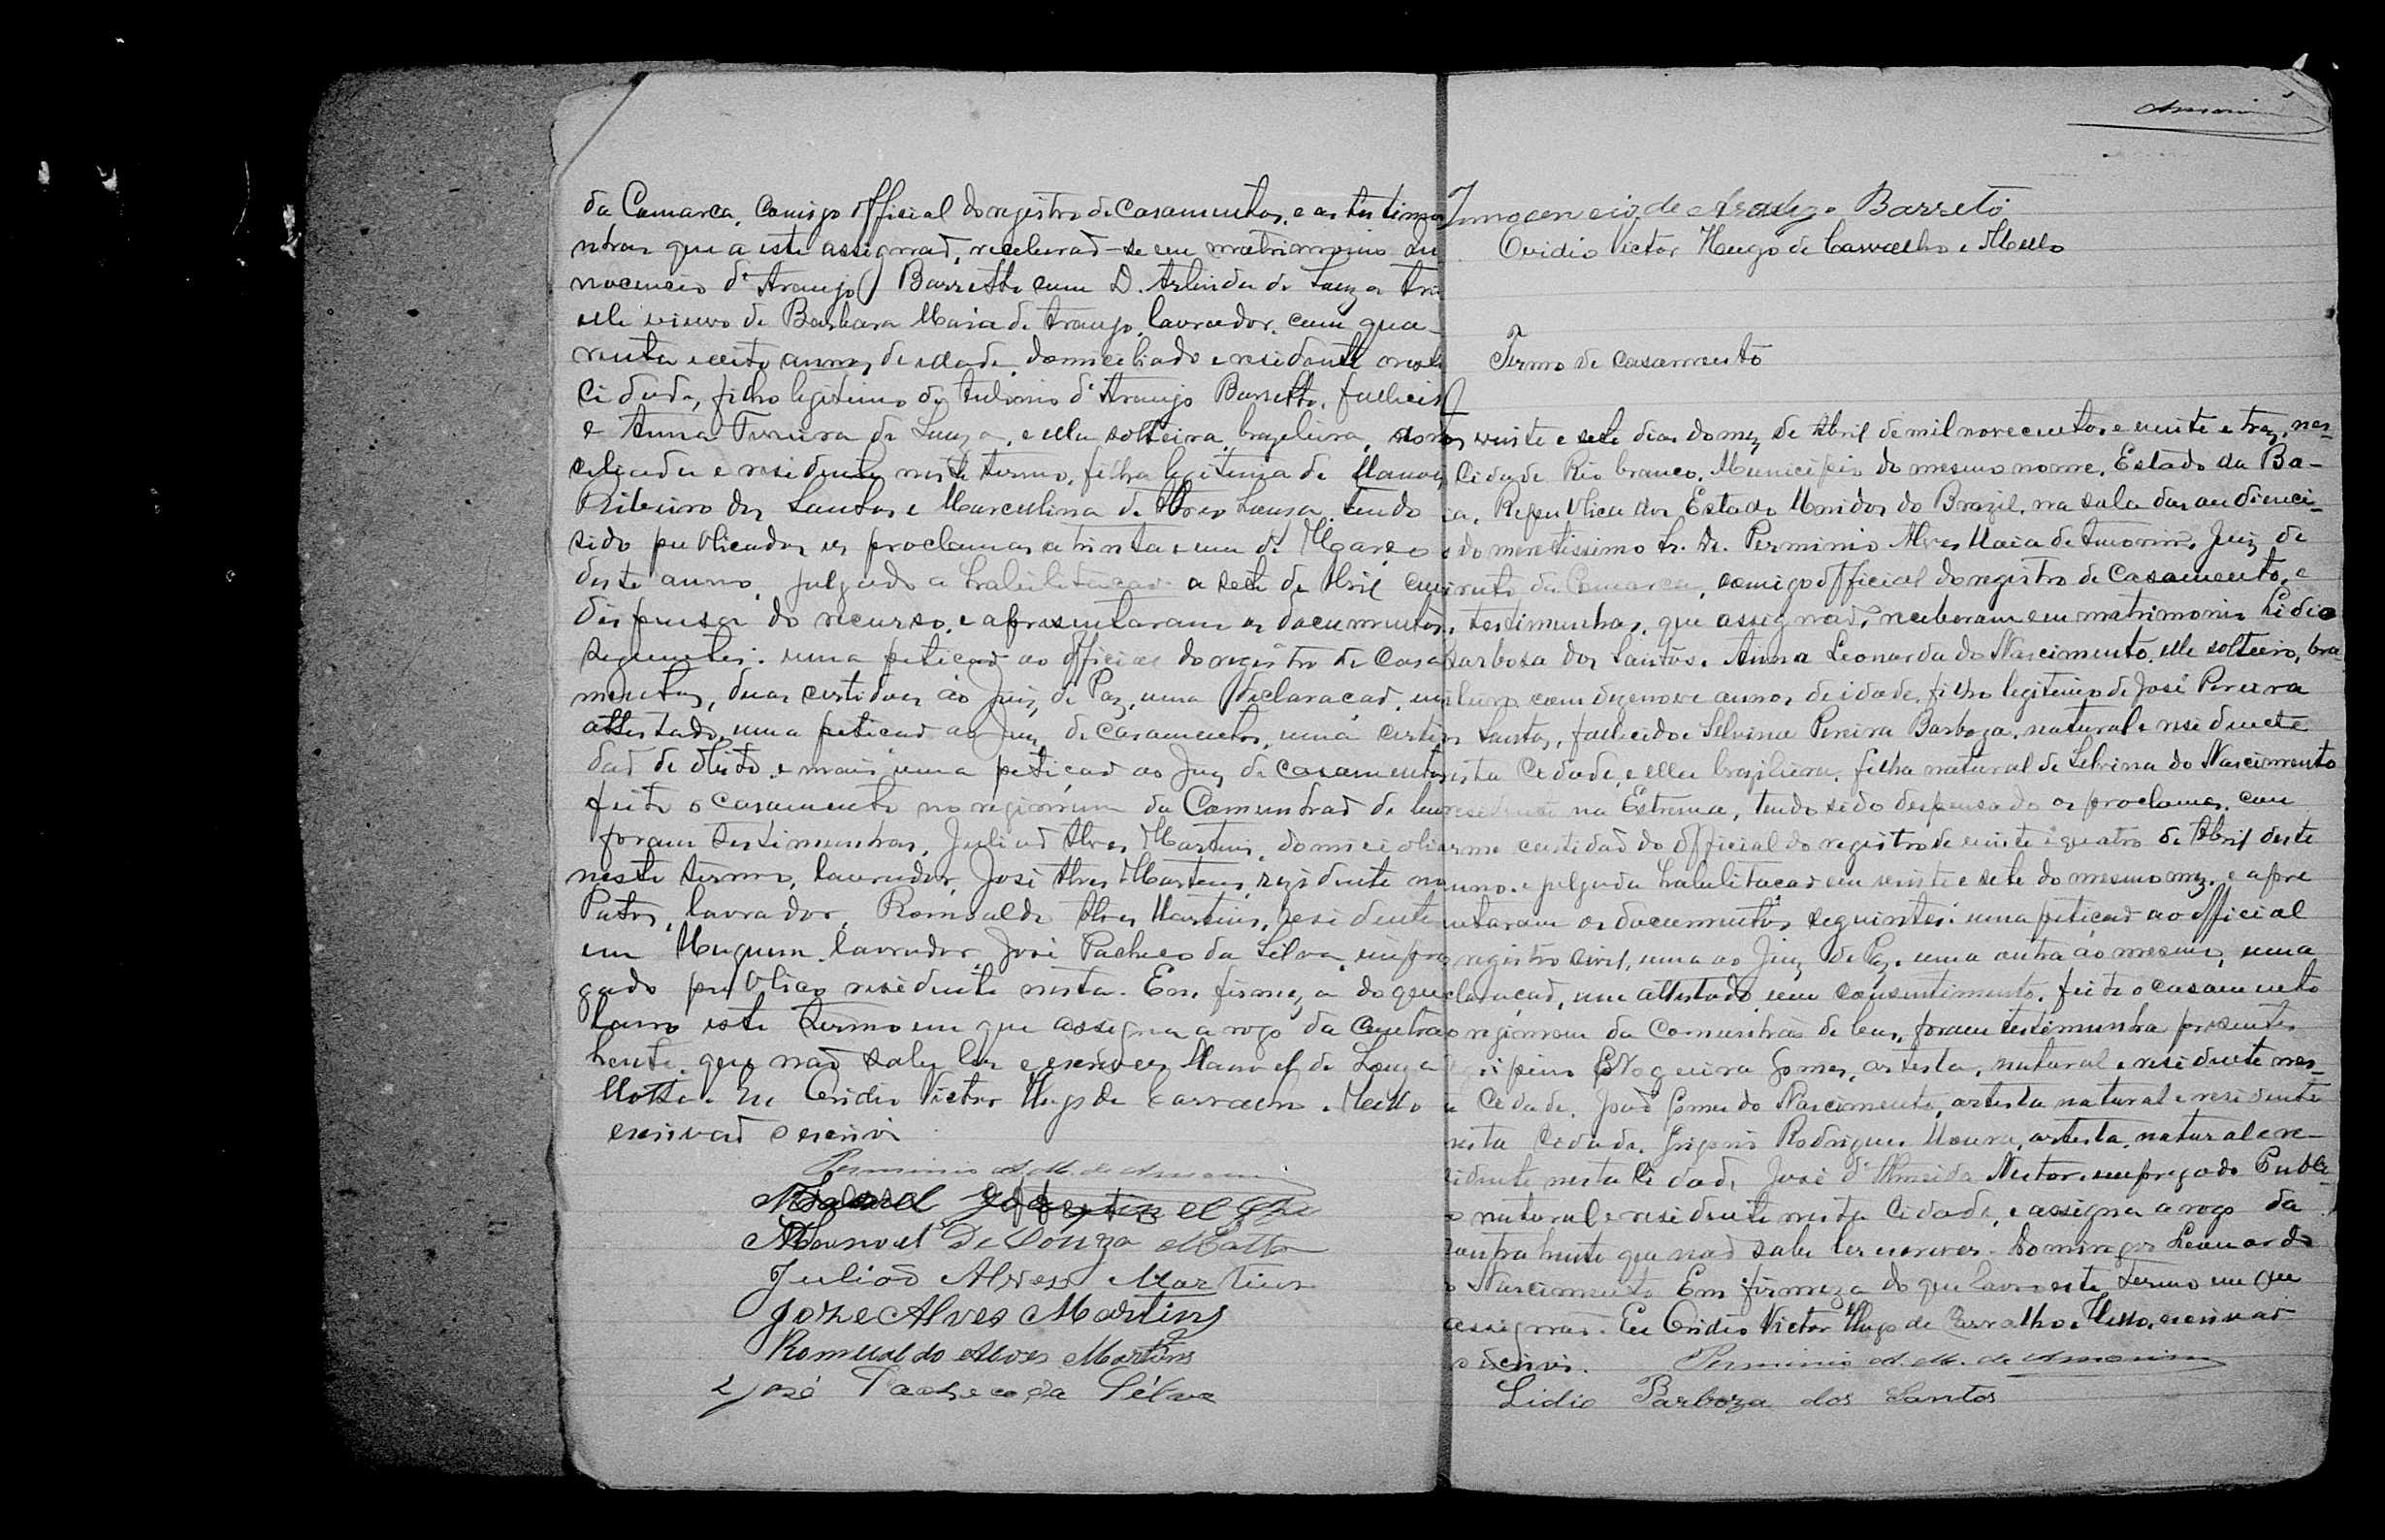 da Comarca, comigo official do registro de casamentos, e as testimu
nhas que a este assignaõ, receberaõ-se em matrimonio In
nocencio d'Araujo Barretto com D. Arlinda de Souza
elle viuvo de Barbara Maria de Araujo, lavrador, com qua-
renta e oito annos de idade, domiciliado e residente nesta
Cidade, filho legitimo de Antonio d'Araujo Barretto, fallecido
e Anna Ferreira de Souza, e ella solteira, brazileira, domi
ciliada e residente neste termo, filha legitima de Manoel
Ribeiro dos Santos e Marcullina de Souza, tendo
sido publicados os proclamas a trinta e um de Março
deste anno, julgado a habilitaçaõ a sete de Abril com
dispensa do recurso, e apresentaram os documentos
seguintes: uma petiçaõ ao official do registro de Casa
mentos, duas certidoes ao Juiz de Paz, uma declaraçaõ, um
attestado, uma petiçaõ ao Juiz de Casamentos, uma certi
daõ de obito, e mais uma petiçaõ ao Juiz de casamentos
feito o casamento no regimem da Comunhaõ de bens
foram testimunhas, Juliaõ Alves Martins, domicilia
neste termo, lavrador, José Alves Martins, rezidente no
Patos, lavrador, Romualdo Alves Martins, residente
em Muquem, lavrador, José Pacheco da Silva, empre
gado publico residente nesta. Em firmeza do que
lavro este termo em que assigna a rogo da contra
hente, que naõ sabe ler e escrever Manoel de Souza
Motta. Eu Ovidio Victor Hugo de Carvalho e Mello
escrivaõ o escrevi
Perminio A. M. de Amorim
Manoel De Souza Motta
Juliaõ Alves Martins
Joze Alves Martins
Romualdo Alves Martins
José Pacheco da Silva
Amorim
Innocencio de Araujo Barreto
Ovidio Victor Hugo de Carvalho e Mello
Termo de casamento
vinte e sete dias do mez de Abril de mil novecentos e vinte e trez, nes-
Cidade Rio branco, Municipio do mesmo nome, Estado da Ba-
ia, Republica dos Estados Unidos do Brazil, na sala das audienci-
do meretissimo Sr. Dr. Perminio Alves Maia de Amorim, Juiz de
reito da Comarca, comigo official do registro de Casamento, e
testimunhas, que assignaõ, receberam em matrimonio Lidio
Barbosa dos Santos e Anna Leonarda do Nascimento, elle solteiro, bra
leiro com dezenove annos de idade, filho legitimo de José Pereira
s Santos, fallecido e Silvina Pereira Barboza, natural e residente
esta Cidade, e ella brazileira, filha natural de Silvina do Nascimento
residente na Estrema, tendo sido dispensado os proclamas, con
orme certidaõ do official do registro de vinte e quatro de Abril deste
nno, e julgada habilitaçaõ em vinte e sete do mesmo mez, e apre
ntaram os documentos seguintes: uma petiçaõ ao official
registro civil, uma ao Juiz de Paz, uma outra ao mesmo, uma
claraçaõ, um attestado, um consentimento, feito o casamento
o regimem da Comunhaõ de bens, foram testimunha presentes
Nogueira Gomes, artista, natural e residente nes-
a Cidade, Joaõ Gomes do Nascimento, artista natural e residente
nesta Cidade, Grigorio Rodrigues Moura, artista, natural e re-
sidente nesta Cidade, José d'Almeida Nectar, empregado Publi-
o natural e residente nesta Cidade, e assigna a rogo da
contrahente que naõ sabe ler e escrever. Domingos Leonardo
o Nascimento Em firmeza do que lavro este termo em que
assignaõ. Eu Ovidio Victor Hugo de Carvalho e Mello, escrivaõ
o escrevi. Perminio A. M. de Amorim
Lidio Barboza dos Santos